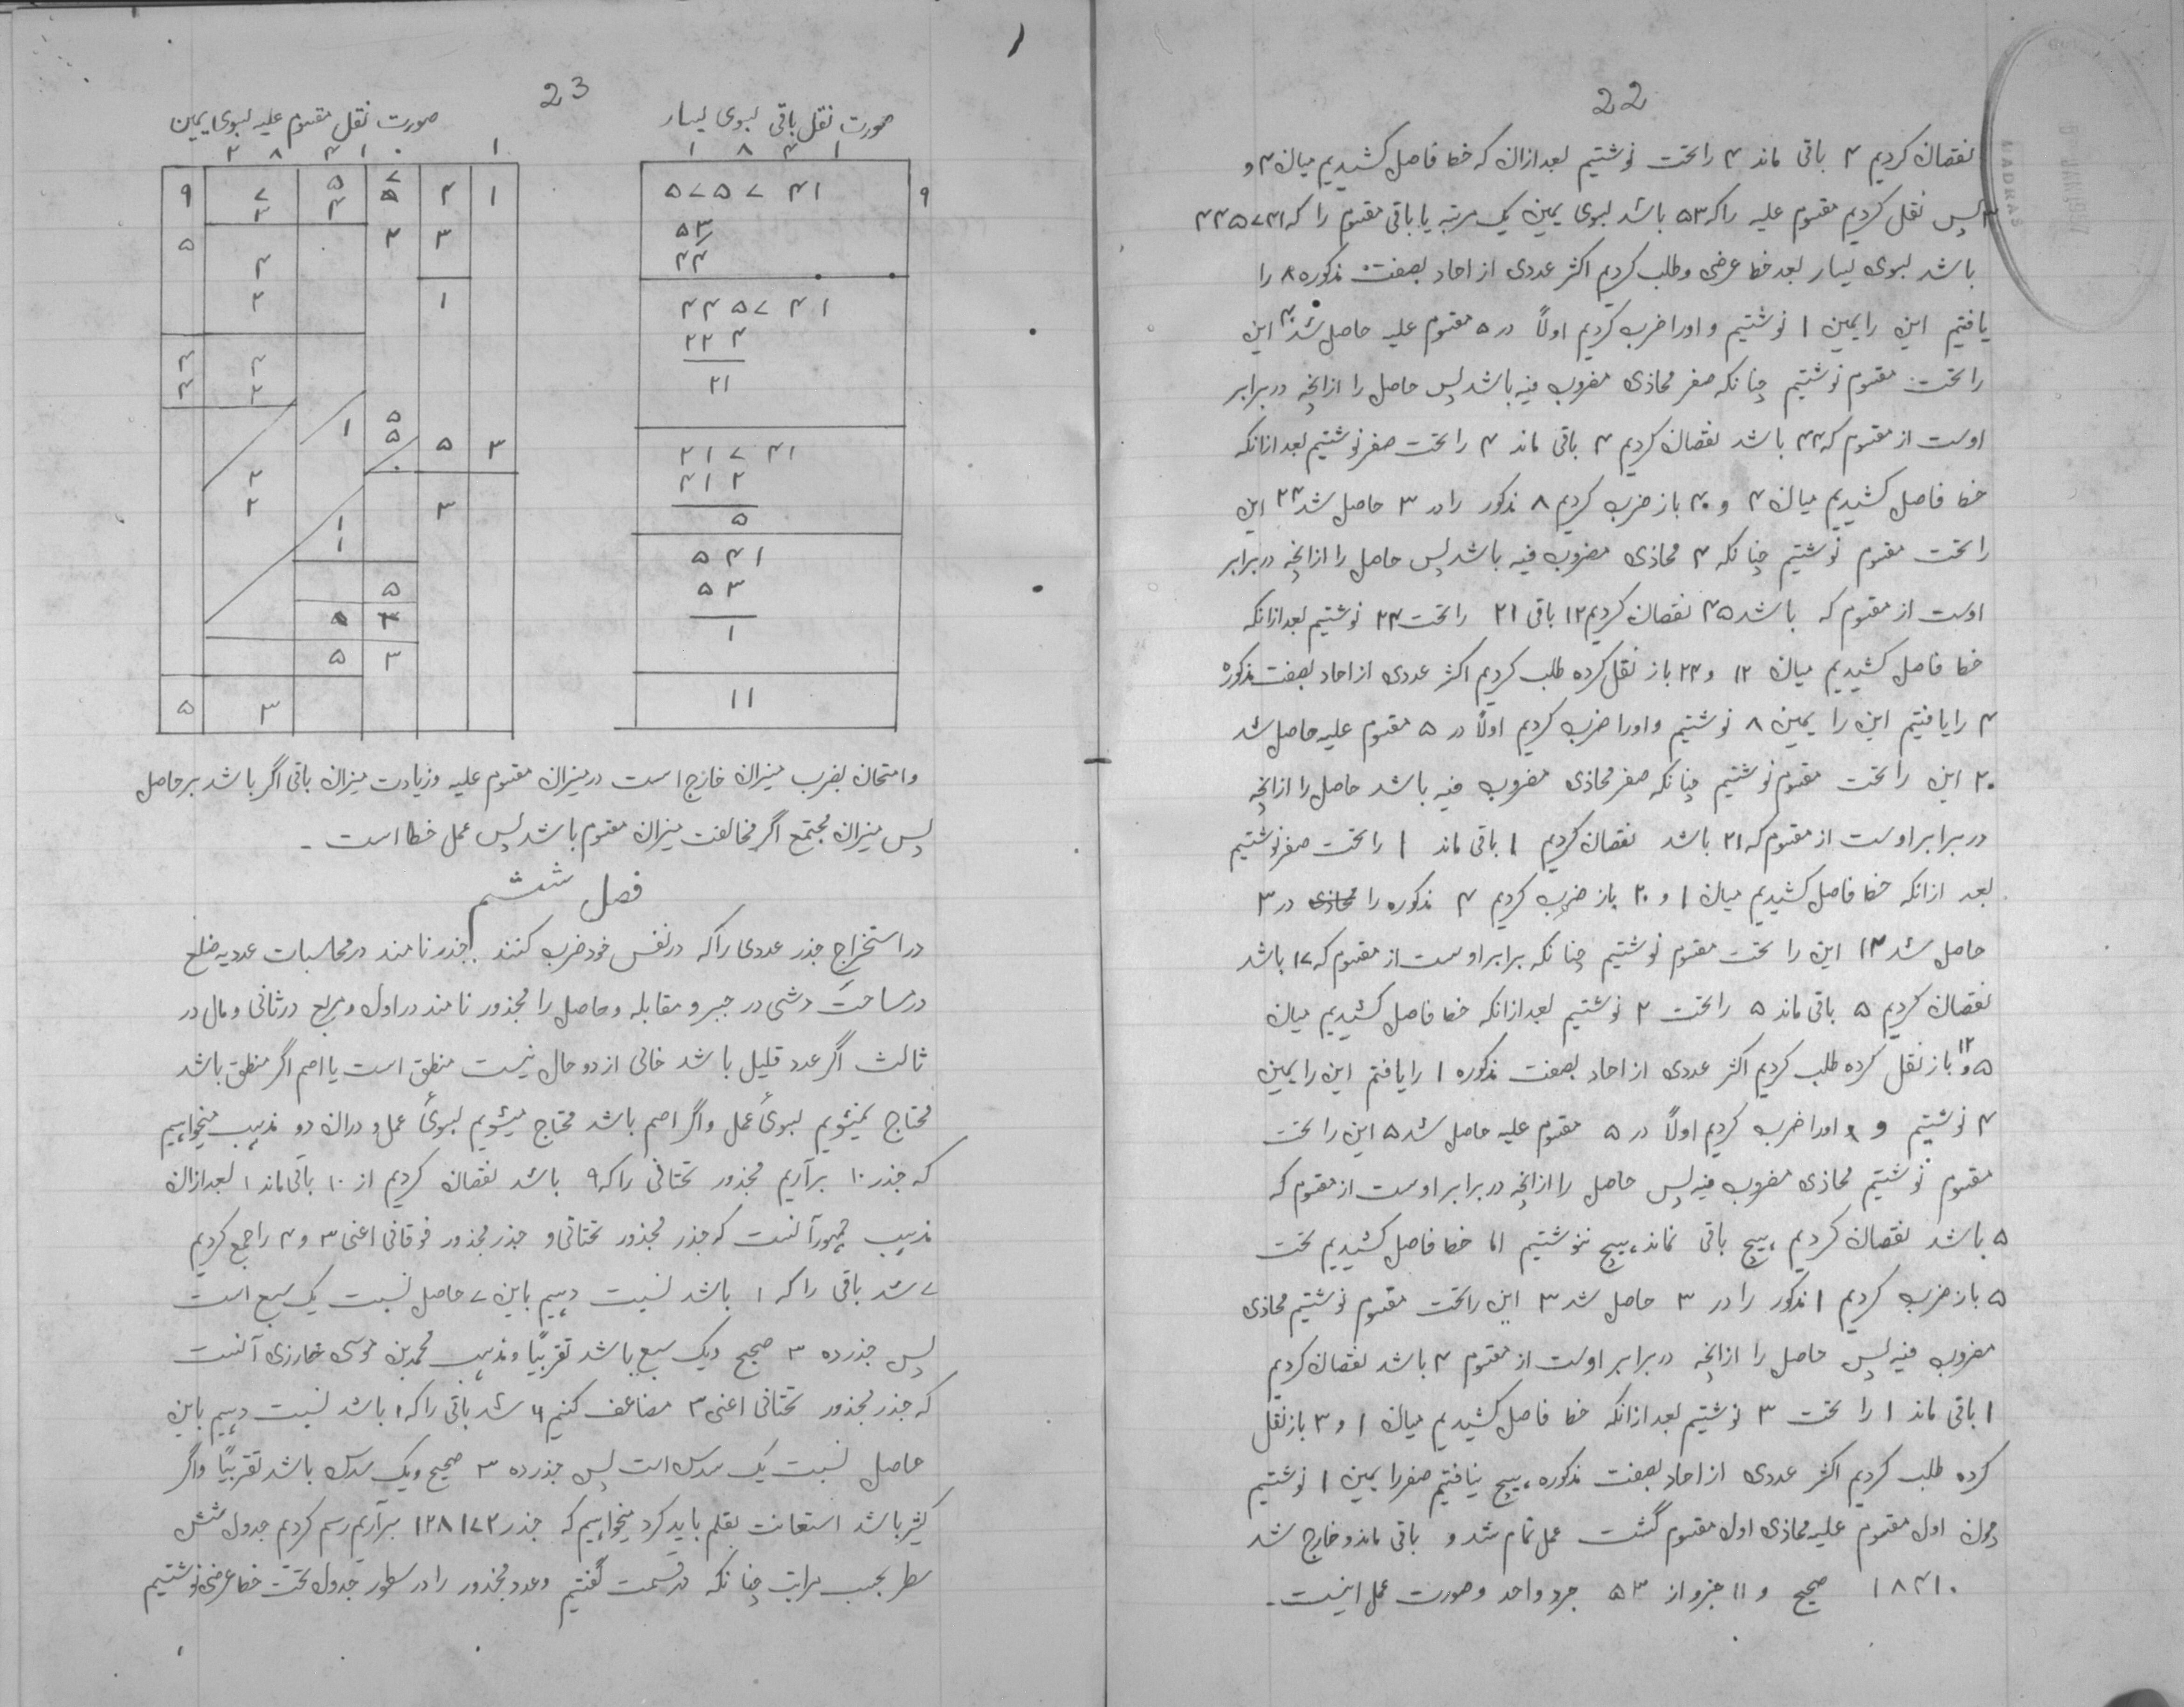 22
نقصان کردیم ۴ باقی ماند ۴ را تحت نوشتیم بعد ازان که خط فاصل کشیدیم میان ۴ و
۴ پس نقل کردیم مقسوم علیه را که ۵۳ باشد بسوی یمین یک مرتبه یا باقی مقسوم را که ۴۴۵۷۴۱
باشد بسوی یسار بعد خط عرضی و طلب کردیم اکثر عددی از احاد بصفت مذکوره ۸ را
یافتیم این را یمین ۱ نوشتیم و او را ضرب کردیم اولاً در ۵ مقسوم علیه حاصل شد ۴۰ این
را تحت مقسوم نوشتیم چنانکه صفر محاذی مضروب فیه باشد پس حاصل را ازانچه در برابر
اوست از مقسوم که ۴۴ باشد نقصان کردیم ۴ باقی ماند ۴ را تحت صفر نوشتیم بعد ازانکه
خط فاصل کشیدیم میان ۴ و ۴۰ باز ضرب کردیم ۸ مذکور را در ۳ حاصل شد ۲۴ این
را تحت مقسوم نوشتیم چنانکه ۴ محاذی مضروب فیه باشد پس حاصل را ازانچه در برابر
اوست از مقسوم که باشد ۴۵ نقصان کردیم ۱۲ باقی ۲۱ را تحت ۲۴ نوشتیم بعد ازانکه
خط فاصل کشیدیم میان ۱۲ و ۲۴ باز نقل کرده طلب کردیم اکثر عددی از احاد بصفت مذکوره
۴ را یافتیم این را یمین ۸ نوشتیم و او را ضرب کردیم اولاً در ۵ مقسوم علیه حاصل شد
۲۰ این را تحت مقسوم نوشتیم چنانکه صفر محاذی مضروب فیه باشد حاصل را ازانچه
در برابر اوست از مقسوم که ۲۱ باشد نقصان کردیم ۱ باقی ماند ۱ را تحت صفر نوشتیم
بعد ازانکه خط فاصل کشیدیم میان ۱ و ۲۰ باز ضرب کردیم ۴ مذکوره را محاذی در ۳
حاصل شد ۱۲ این را تحت مقسوم نوشتیم چنانکه برابر اوست از مقسوم که ۱۷ باشد
نقصان کردیم ۵ باقی ماند ۵ را تحت ۲ نوشتیم بعد ازانکه خط فاصل کشیدیم میان
۵ و ۱۲ باز نقل کرده طلب کردیم اکثر عددی از احاد بصفت مذکوره ۱ را یافتم این را یمین
۴ نوشتیم و او را ضرب کردیم اولاً در ۵ مقسوم علیه حاصل شد ۵ این را تحت
مقسوم نوشتیم محاذی مضروب فیه پس حاصل را ازانچه در برابر اوست از مقسوم که
۵ باشد نقصان کردیم ہیچ باقی نماند ہیچ ننوشتیم اما خط فاصل کشیدیم تحت
۵ باز ضرب کردیم ۱ مذکور را در ۳ حاصل شد ۳ این را تحت مقسوم نوشتیم محاذی
مضروب فیه پس حاصل را ازانچه در برابر اوست از مقسوم ۴ باشد نقصان کردیم
۱ باقی ماند ۱ را تحت ۳ نوشتیم بعد ازانکه خط فاصل کشیدیم میان ۱ و ۳ باز نقل
کرده طلب کردیم اکثر عددی از احاد بصفت مذکوره ہیچ نیافتیم صفر را یمین ۱ نوشتیم
چون اول مقسوم علیه محاذی اول مقسوم گشت عمل تمام شد و باقی ماند و خارج شد
۱۸۴۱۰ صحیح و ۱۱ جزو از ۵۳ جزو واحد و صورت عمل اینست ۔
23
صورت نقل باقی بسوی یسار
۱ ۸ ۴ ۱
۹ ۵۷۵۷۴۱
۵۳
۴۴
۴۴۵۷۴۱
۲۲۴
۲۱
۲۱۷۴۱
۴۱۲
۵
۵۴۱
۵۳
۱
۱۱
صورت نقل مقسوم علیه بسوی یمین
۲ ۸ ۴ ۱ ۰ ۱
۹ ۷ ۵ ۷ ۴ ۱
۳ ۴ ۵
۵ ۲ ۳
۴
۲ ۱
۴ ۴
۴ ۲
۱ ۵
۵ ۵ ۳
۲ ۰
۲ ۱ ۳
۱
۵
۵ ۳
۵ ۳
۵ ۳
و امتحان بضرب میزان خارج است در میزان مقسوم علیه و زیادت میزان باقی اگر باشد بر حاصل
پس میزان مجتمع اگر مخالفت میزان مقسوم باشد پس عمل خطا است ۔
فصل ششم
در استخراج جذر عددی را که در نفس خود ضرب کنند جذر نامند در محاسبات عددیه ضلع
در مساحت و شی در جبر و مقابله و حاصل را مجذور نامند در اول و مربع در ثانی و مال در
ثالث اگر عدد قلیل باشد خالی از دو حال نیست منطق است یا اصم اگر منطق باشد
محتاج نمیشویم بسوی عمل و اگر اصم باشد محتاج میشویم بسوی عمل و دران دو مذہب میخواہیم
که جذر ۱۰ برآریم مجذور تحتانی را که ۹ باشد نقصان کردیم از ۱۰ باقی ماند ۱ بعد ازان
مذہب جمہور آنست که جذر مجذور تحتانی و جذر مجذور فوقانی اعنی ۳ و ۴ را جمع کردیم
۷ شد باقی را که ۱ باشد نسبت دہیم باین ۷ حاصل نسبت یک سبع است
پس جذر ده ۳ صحیح و یک سبع باشد تقریباً و مذہب محمد بن موسی خوارزی آنست
که جذر مجذور تحتانی اعنی ۳ مضاعف کنیم ۶ شد باقی را که ۱ باشد نسبت دہیم باین
حاصل نسبت یک سدس است پس جذر ده ۳ صحیح و یک سدس باشد تقریباً و اگر
کثیر باشد استعانت بقلم باید کرد میخواہیم که جذر ۱۲۸۱۷۲ برآریم رسم کردیم جدول شش
سطر بحسب مراتب چنانکه در قسمت گفتیم و عدد مجذور را در سطور جدول تحت خط عرضی نوشتیم